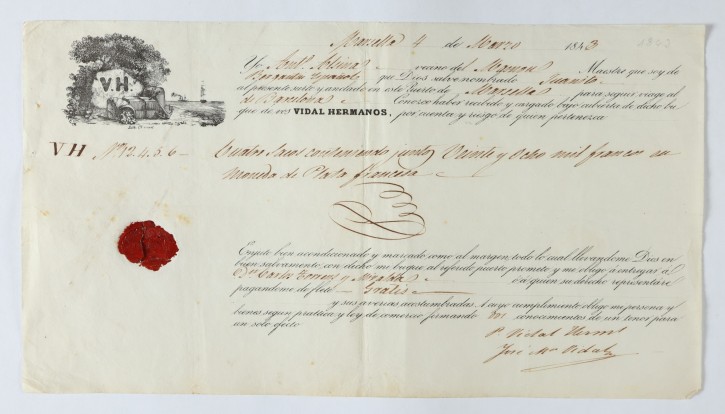 Marsella 4 de Marzo 1843
V.H.
Yo Ant.º Alsina vecino del Masnou Maestre que soy de
Bergantin Español que Dios salve nombrado Juanito
al presente surto y anclado en este Puerto de Marsella para seguir viage al
de Barcelona Conozco haber recibido y cargado bajo cubierta de dicho bu
que de vos VIDAL HERMANOS, por cuenta y riesgo de quien pertenezca
VH Nos 3.4.5.6 Cuatro Sacos conteniendo juntos Veinte y Ocho mil francos en
moneda de Plata francesa
Enjuto bien acondicionado y marcado como al margen, todo lo cual llevandome Dios en
buen salvamento con dicho mi buque al referido puerto prometo y me obligo á entregar á
Dn Carlos Torrens y Miralda ó a quien su derecho representáre
pagandome de flete Gratis
y sus averias acostumbradas. A cuyo cumplimento obligo mi persona y
bienes segun pratica y ley de comercio firmando conocimientos de un tenor para
un solo efecto
P. Vidal Hermos
José Ma Vidal